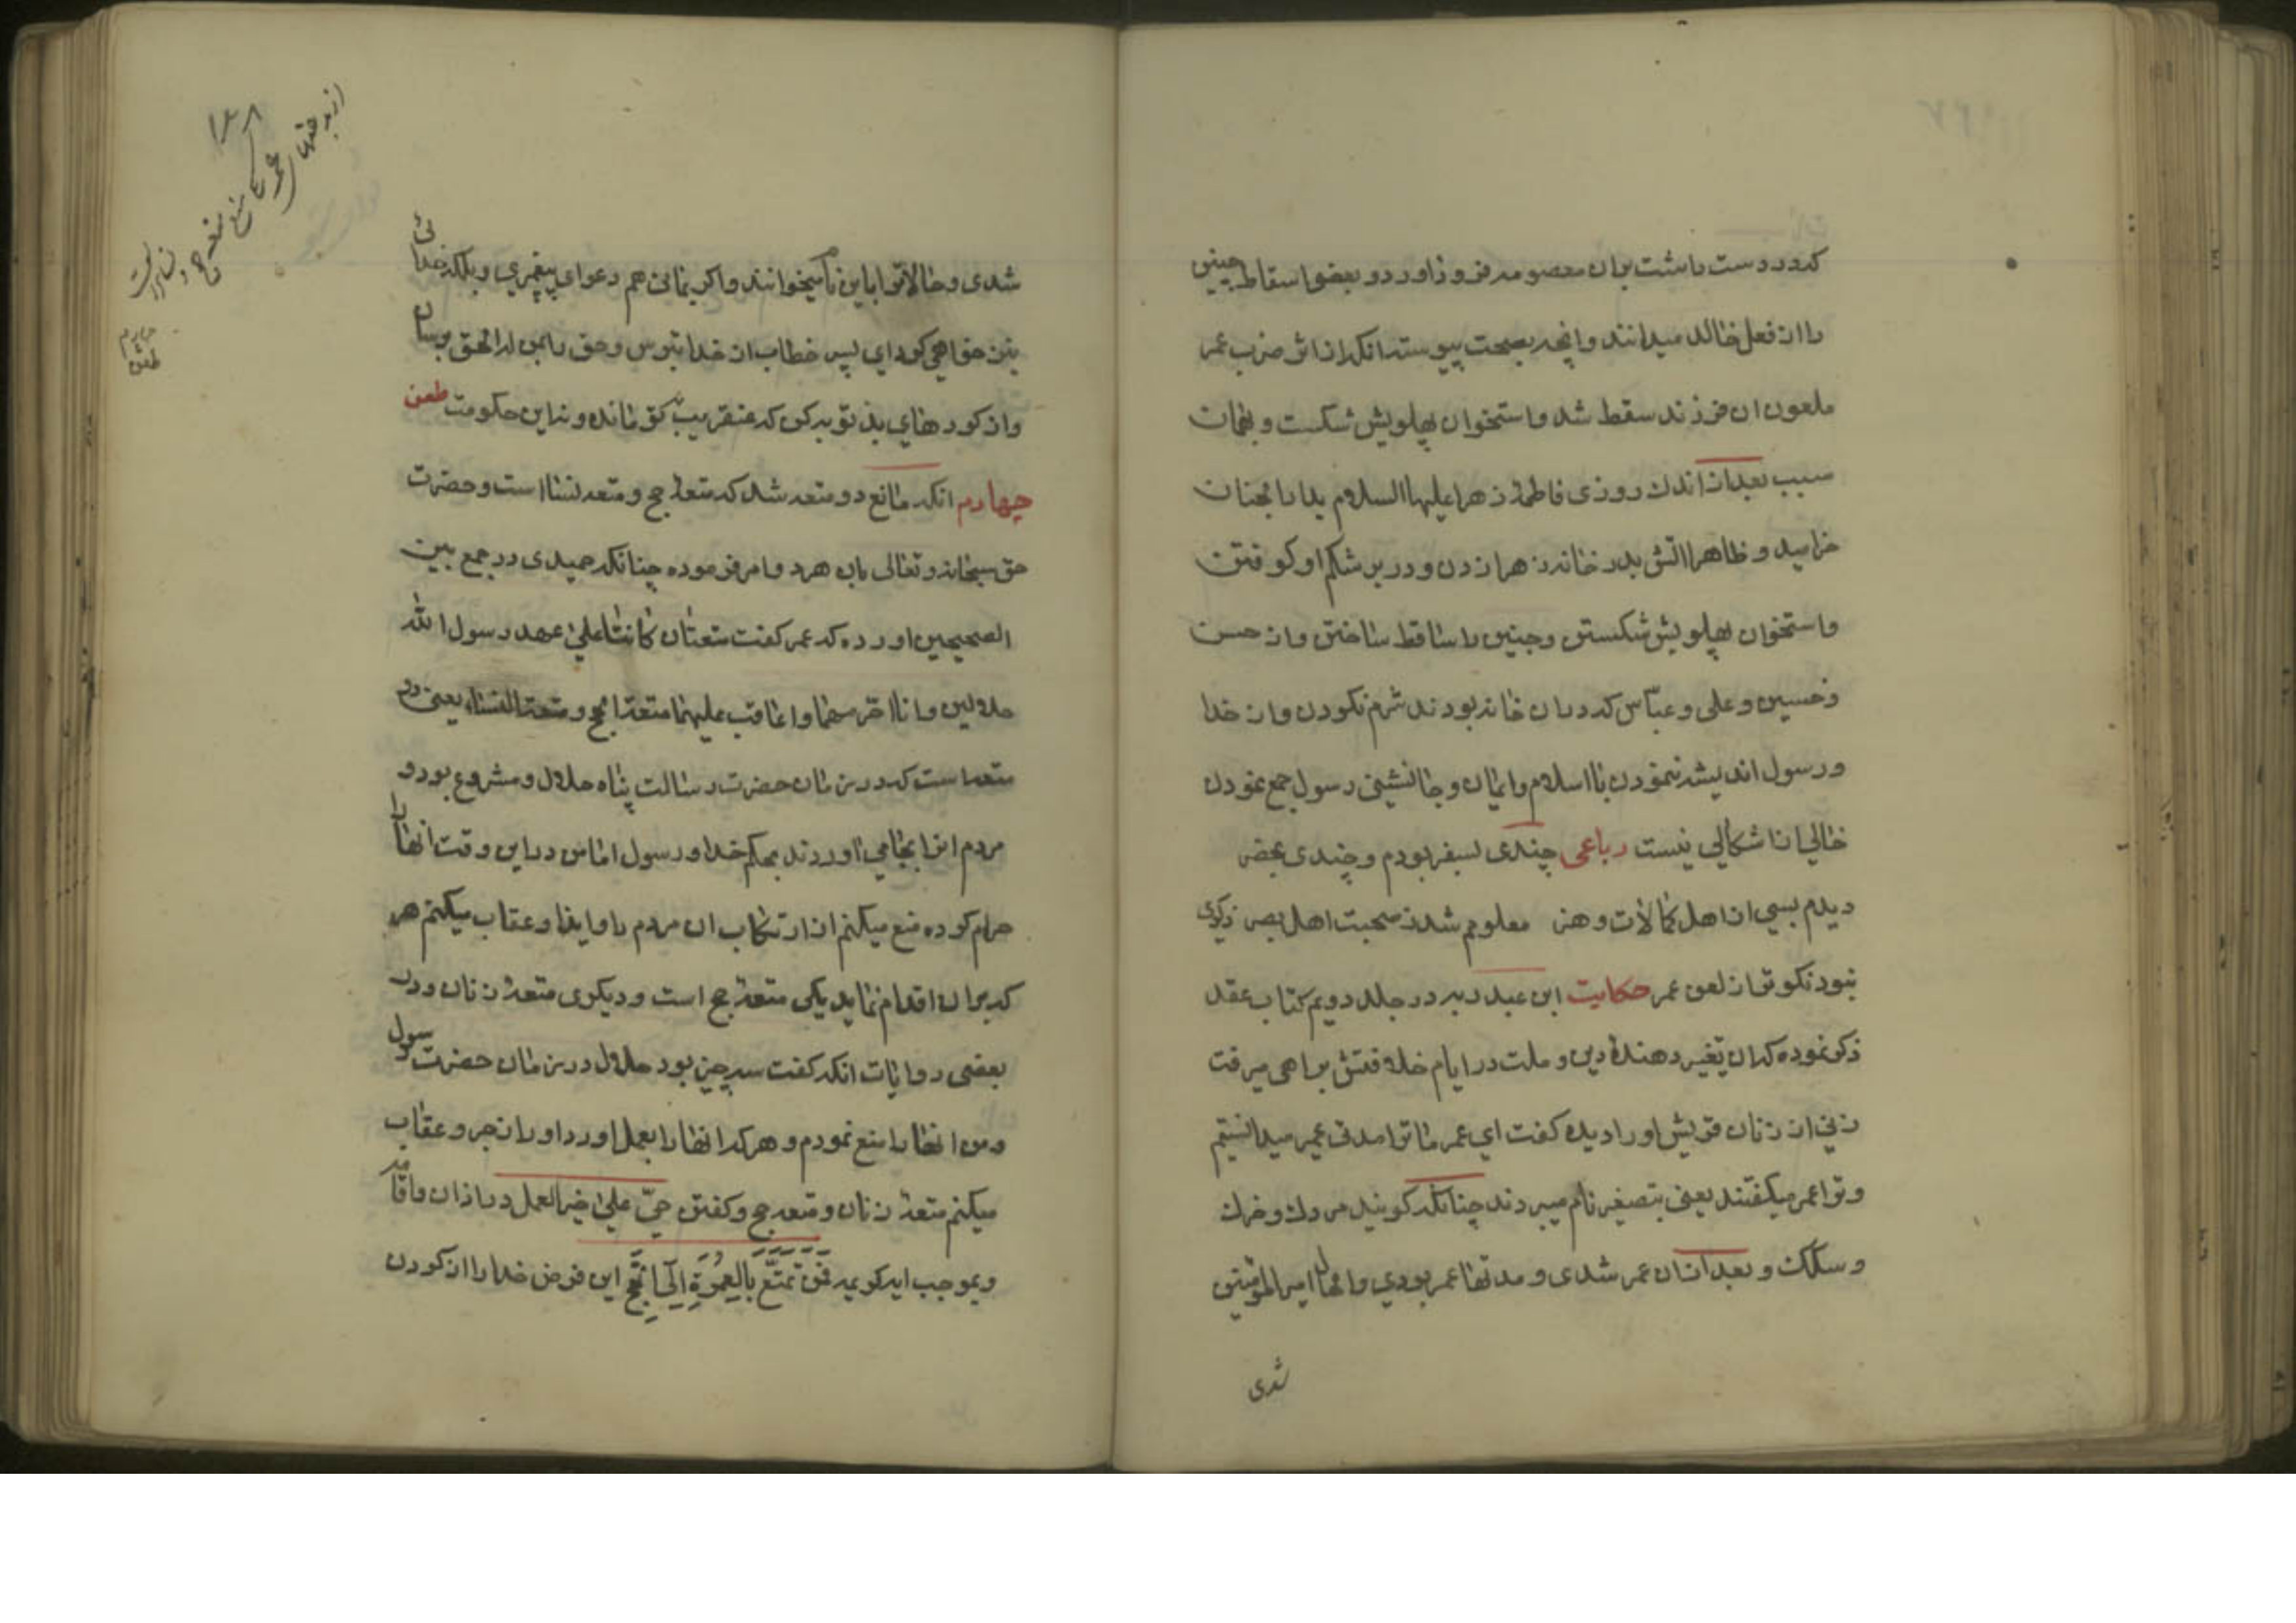 که در دست داشت بران معصومه فرود اورد و بعضی اسقاط جنین
را از فعل خالد میدانند و انچه بصحت پیوسته انکه از اثر ضرب عمر
ملعون ان فرزند سقط شد و استخوان پهلویش شکست و بهمان
سبب بعد از اندک روزی فاطمهٔ زهرا علیها السلام بدار الجنان
خرامید و ظاهرا اتش بدر خانه زهرا زدن و در بر شکم او کوفتن
و استخوان پهلویش شکستن و جنین را ساقط ساختن و از حسن
و حسین و علی و عباس که در ان خانه بودند شرم نکردن و از خدا
و رسول اندیشه ننمودن با اسلام و ایمان و جانشینی رسول جمع نمودن
خالی از اشکالی نیست رباعی چندی بسفر بودم و چندی بحضر
دیدم بسی از اهل کمالات و هنر معلومم شد ز صحبت اهل بصر ذکری
نبود نکوتر از لعن عمر حکایت ابن عبد ربه در جلد دویم کتاب عقد
ذکر نموده که ان تغییر دهندهٔ دین و ملت در ایام خلافتش براهی میرفت
زنی از زنان قریش او را دیده کفت ای عمر ما ترا مدتی عمیر میدانستیم
و ترا عمیر میکفتند یعنی بتصغیر نام میبردند چنانکه کویند مردک و خرک
و سکک و بعد از ان عمر شدی و مدتها عمر بودی و الحال امیر المؤمنین
شدی
شدی و حالا ترا باین نام میخوانند و اکر بمانی هم دعوای پیغمبری و بلکه خدائی
نیز خواهی کرد ای پسر خطاب از خدا بترس و حق را بمن له الحق برسان
و از کردهای بد توبه کن که عنقریب نه تو مانده و نه این حکومت طعن
چهارم انکه مانع دو متعه شد که متعهٔ حج و متعه نسا است و حضرت
حق سبحانه و تعالی بان هر دو امر فرموده چنانکه حمیدی در جمع بین
الصحیحین اورده که عمر کفت متعتان کانتا علی عهد رسول الله
حلالین و انا احرمهما و اعاقب علیهما متعة الحج و متعة النساء یعنی دو
متعه است که در زمان حضرت رسالت پناه حلال و مشروع بود و
مردم انرا بجا می اوردند بحکم خدا و رسول اما من در این وقت انها را
حرام کرده منع میکنم از ارتکاب ان مردم را و ایذا و عقاب میکنم هر
که بران اقدام نماید یکی متعهٔ حج است و دیکری متعهٔ زنان و در
بعضی روایات انکه کفت سه چیز بود حلال در زمان حضرت رسول
و من انها را منع نمودم و هر که انها را بعمل اورد او را زجر و عقاب
میکنم متعهٔ زنان و متعه حج و کفتن حی علی خیر العمل در اذان و اقامه
و بموجب ایه کریمه فَمَن تَمَتَّعَ بِالعُمرَةِ اِلَی الحَجِّ این فرض خدا را ازکردن
۱۲۸
از بدعتهای
عمر که منع متعه حج و نسا
چهارم
طعن